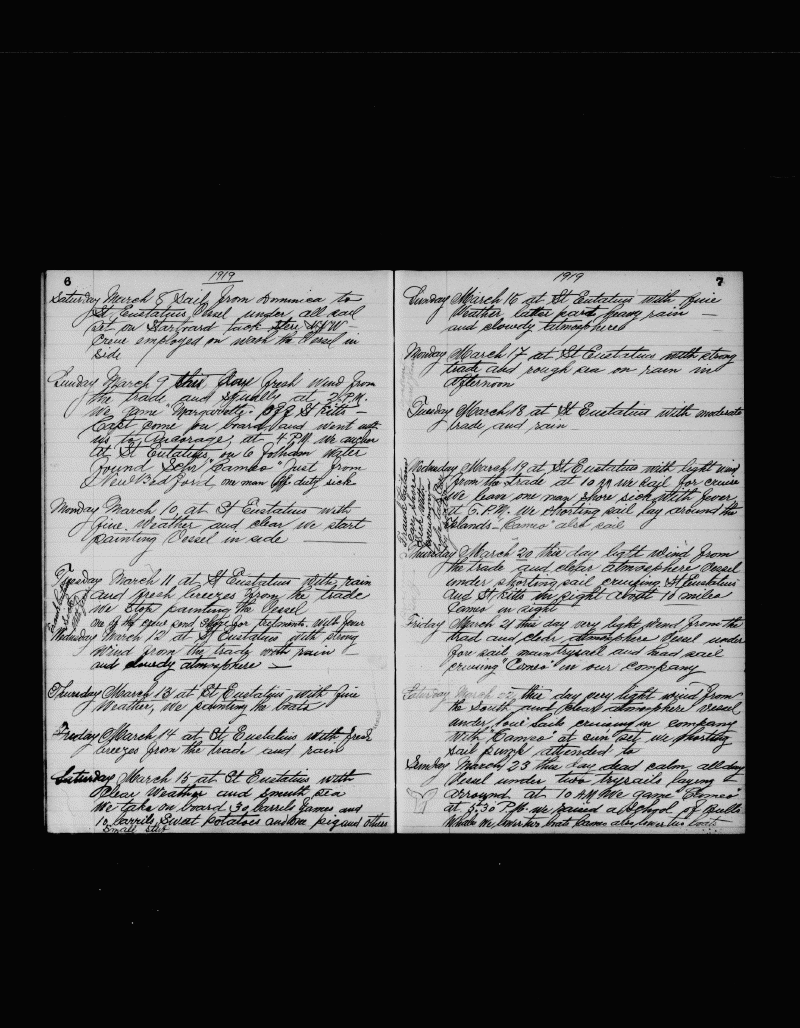 6
1919
Saturday March 8 Sail from Dominica to
St Eustatius Vesel under all sail
set on Starboard tack
Crew employed on wash the Vessel in
side
Sunday March 9 this day fresh wind from
the trade and squally at 2 P.M.
we game "Margarett" off St Kitts -
Capt come on board and went with
us to ancorage, at 4 PM we anchor
at St Eutatius on 6 Fathom water
found Schr "Cameo" Just from
New Bedford one man off duty sick
Monday March 10, at St Eustatius with
fine Weather and clear we start
painting Vessel in side
Tuesday March 11 at St Eustatius with rain
and fresh breezes from the trade
we stop painting the Vessel
one of the crew send for treatments with fever
Wednesday March 12 at St Eustatius with strong
Wind from the trade with rain
and clowdy atmosphere
Thursday March 13 at St Eustatius with fine
Weather, We painting the boats
Friday March 14 at St Eustatius with fresh
breezes from the trade and rain
Saturday March 15 at St Eustatius with
Clear Weather and smouth sea
We take on board 30 barrels Yames and
10 barrils Sweat potatoes and one pig and others
Small stuf
1919
7
Sunday March 16 at St Eutatius with fine
Weather latter part many rain
and clowdy atmosphere
Monday March 17 at St Eustatius with strong
trade and rough sea on rain in
afternoon
Tuesday March 18 at St Eustatius with moderate
trade and rain
Wednesday March 19 at St Eustatius with light wind
from the trade at 10 AM we sail for cruise
We leave one man shore sick with fever
at 6 P.M. we shorting sail lay around the
Islands - "Cameo" also sail
Thursday March 20 this day light wind from
the trade and clear atmosphere Vessel
under shorting sail cruising St Eustatius
and St Kitts in sight about 10 miles
Cameo in sight
Friday March 21 this day very light wind from the
trad and clear atmosphere Vesel under
fore sail main trysail and head sail
cruising "Cameo" in our company
Saturday March 22 this day very light wind from
the South and clear atmosphere vessel
under four sails cruising in company
with "Cameo" at sun set we shorting
sail pump attended to
Sunday March 23 this day dead calm all day
Vesel under two trysails laying
arround at 10 AM We game "Cameo"
at 5:30 P.M. we raised a School of Bulls
Whale we lower two boats Cameo also lower two boats